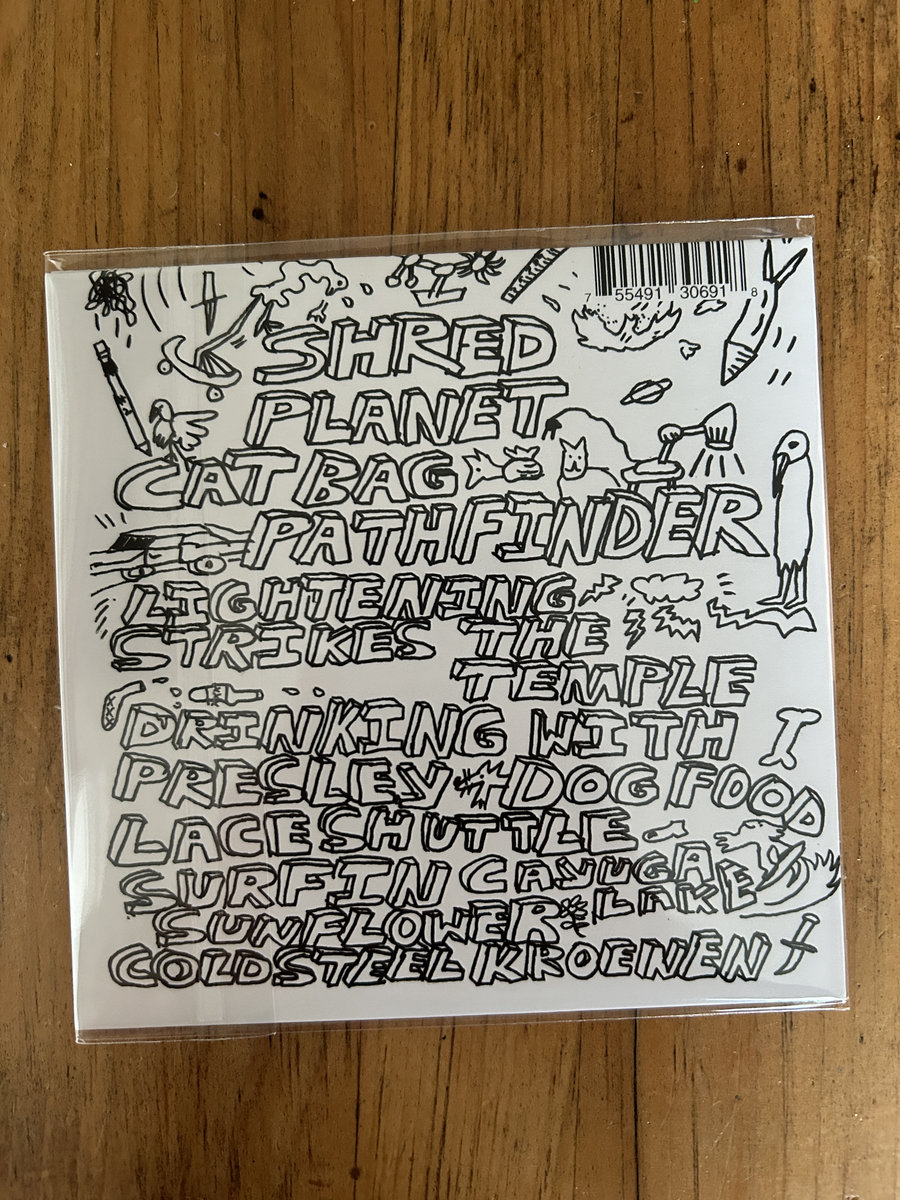 7 55491 30691 8
SHRED
PLANET
CAT BAG
PATHFINDER
LIGHTENING
STRIKES THE
TEMPLE
DRINKING WITH
PRESLEY DOG FOOD
LACE SHUTTLE
SURFIN CAYUGA
LAKE
SUNFLOWER
COLD STEEL KROENEN